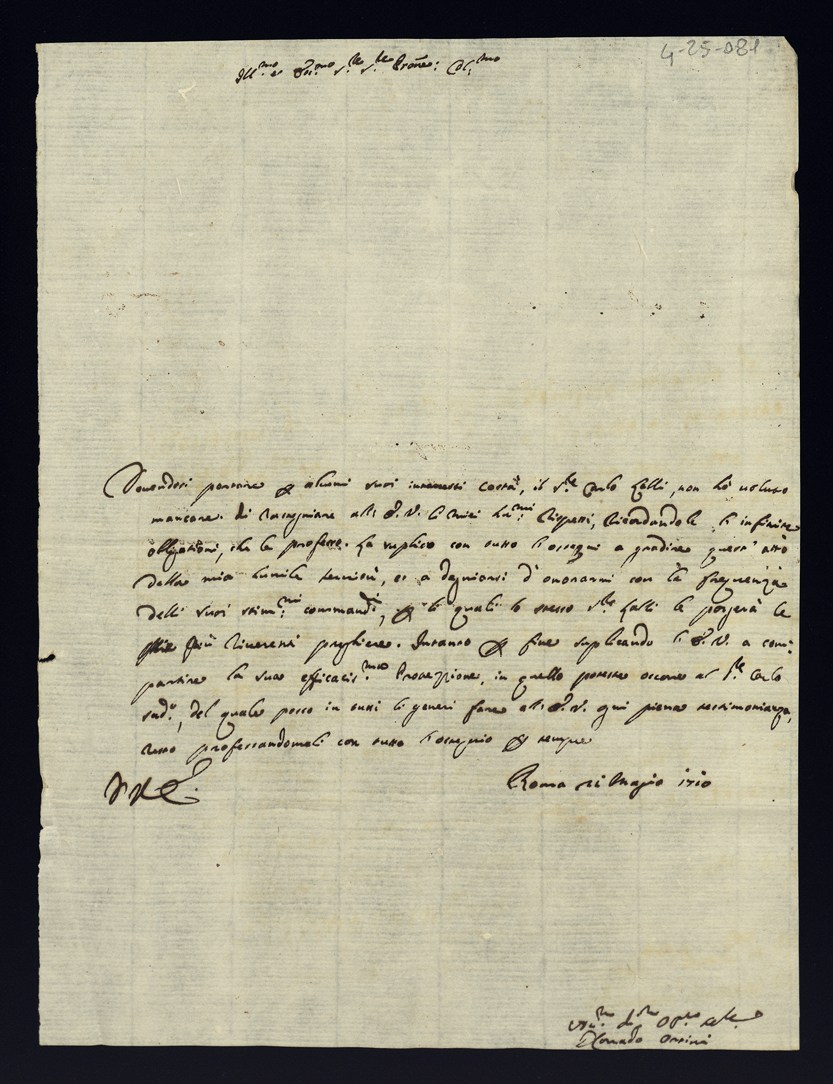 4-25-081
Ill.mo et Ecc.mo S.re S.re Prone: Col.mo
Dovendosi portare p alcuni suoi interessi costà, il S.re Carlo Galli, non hò voluto
mancare di rassegniare all: E.V. li miei hu.mi rispetti, ricordandole l'infinite
obligationi, che le professo. La suplico con tutto l'ossequi a gradire quest'atto
della mia humile servitù, et a degniarsi d'onorarmi con la frequenza
delli suoi stim.mi commandi, p li quali lo stesso S.re Galli le porgerà le
mie più riverenti preghiere. Intanto p fine suplicando l'E.V. a com:
partire la sua efficacis.ma Protezione, in quello potesse occorre al S.re Carlo
sud.o, del quale posso in tutti li generi fare all: E.V. ogni piena testimonianza,
resto professandomeli con tutto l'ossequio p sempre
Roma Maggio 1710
V.E.
d.mo Oblig.mo
Orsini